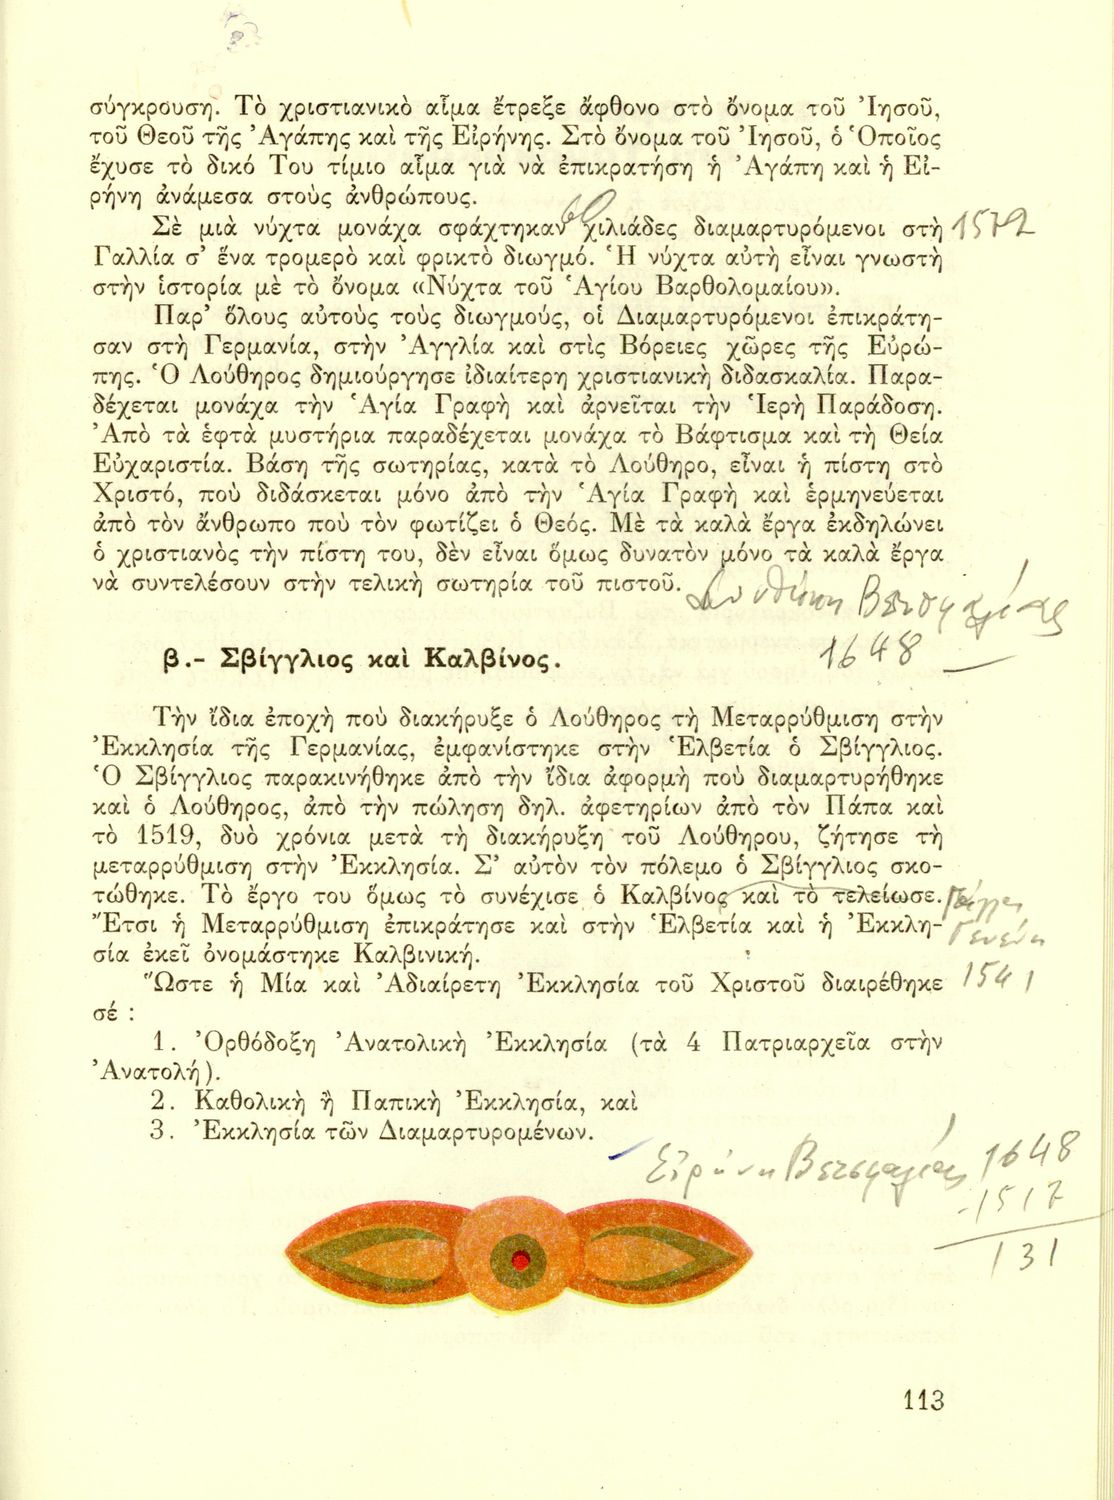 σύγκρουση. Τὸ χριστιανικὸ αἷμα ἔτρεξε ἄφθονο στὸ ὄνομα τοῦ Ἰησοῦ,
τοῦ Θεοῦ τῆς Ἀγάπης καὶ τῆς Εἰρήνης. Στὸ ὄνομα τοῦ Ἰησοῦ, ὁ Ὁποῖος
ἔχυσε τὸ δικό Του τίμιο αἷμα γιὰ νὰ ἐπικρατήση ἡ Ἀγάπη καὶ ἡ Εἰ-
ρήνη ἀνάμεσα στοὺς ἀνθρώπους.
60
Σὲ μιὰ νύχτα μονάχα σφάχτηκαν χιλιάδες διαμαρτυρόμενοι στὴ 1572
Γαλλία σ' ἕνα τρομερὸ καὶ φρικτὸ διωγμό. Ἡ νύχτα αὐτὴ εἶναι γνωστὴ
στὴν ἱστορία μὲ τὸ ὄνομα «Νύχτα τοῦ Ἁγίου Βαρθολομαίου».
Παρ' ὅλους αὐτοὺς τοὺς διωγμούς, οἱ Διαμαρτυρόμενοι ἐπικράτη-
σαν στὴ Γερμανία, στὴν Ἀγγλία καὶ στὶς Βόρειες χῶρες τῆς Εὐρώ-
πης. Ὁ Λούθηρος δημιούργησε ἰδιαίτερη χριστιανικὴ διδασκαλία. Παρα-
δέχεται μονάχα τὴν Ἁγία Γραφὴ καὶ ἀρνεῖται τὴν Ἱερὴ Παράδοση.
Ἀπὸ τὰ ἑφτὰ μυστήρια παραδέχεται μονάχα τὸ Βάφτισμα καὶ τὴ Θεία
Εὐχαριστία. Βάση τῆς σωτηρίας, κατὰ τὸ Λούθηρο, εἶναι ἡ πίστη στὸ
Χριστό, ποὺ διδάσκεται μόνο ἀπὸ τὴν Ἁγία Γραφὴ καὶ ἑρμηνεύεται
ἀπὸ τὸν ἄνθρωπο ποὺ τὸν φωτίζει ὁ Θεός. Μὲ τὰ καλὰ ἔργα ἐκδηλώνει
ὁ χριστιανὸς τὴν πίστη του, δὲν εἶναι ὅμως δυνατὸν μόνο τὰ καλὰ ἔργα
νὰ συντελέσουν στὴν τελικὴ σωτηρία τοῦ πιστοῦ.
Συνθήκη Βεστφαλίας
1648
β.- Σβίγγλιος καὶ Καλβίνος.
Τὴν ἴδια ἐποχὴ ποὺ διακήρυξε ὁ Λούθηρος τὴ Μεταρρύθμιση στὴν
Ἐκκλησία τῆς Γερμανίας, ἐμφανίστηκε στὴν Ἑλβετία ὁ Σβίγγλιος.
Ὁ Σβίγγλιος παρακινήθηκε ἀπὸ τὴν ἴδια ἀφορμὴ ποὺ διαμαρτυρήθηκε
καὶ ὁ Λούθηρος, ἀπὸ τὴν πώληση δηλ. ἀφετηρίων ἀπὸ τὸν Πάπα καὶ
τὸ 1519, δυὸ χρόνια μετὰ τὴ διακήρυξη τοῦ Λούθηρου, ζήτησε τὴ
μεταρρύθμιση στὴν Ἐκκλησία. Σ' αὐτὸν τὸν πόλεμο ὁ Σβίγγλιος σκο-
τώθηκε. Τὸ ἔργο του ὅμως τὸ συνέχισε ὁ Καλβίνος καὶ τὸ τελείωσε. Γάλλος
Ἔτσι ἡ Μεταρρύθμιση ἐπικράτησε καὶ στὴν Ἑλβετία καὶ ἡ Ἐκκλη- Γενεύη
σία ἐκεῖ ὀνομάστηκε Καλβινική.
Ὥστε ἡ Μία καὶ Ἀδιαίρετη Ἐκκλησία τοῦ Χριστοῦ διαιρέθηκε 1541
σέ :
1. Ὀρθόδοξη Ἀνατολικὴ Ἐκκλησία (τὰ 4 Πατριαρχεῖα στὴν
Ἀνατολή).
2. Καθολικὴ ἢ Παπικὴ Ἐκκλησία, καὶ
3. Ἐκκλησία τῶν Διαμαρτυρομένων.
Εἰρήνη Βεστφαλίας 1648
-1517
131
113